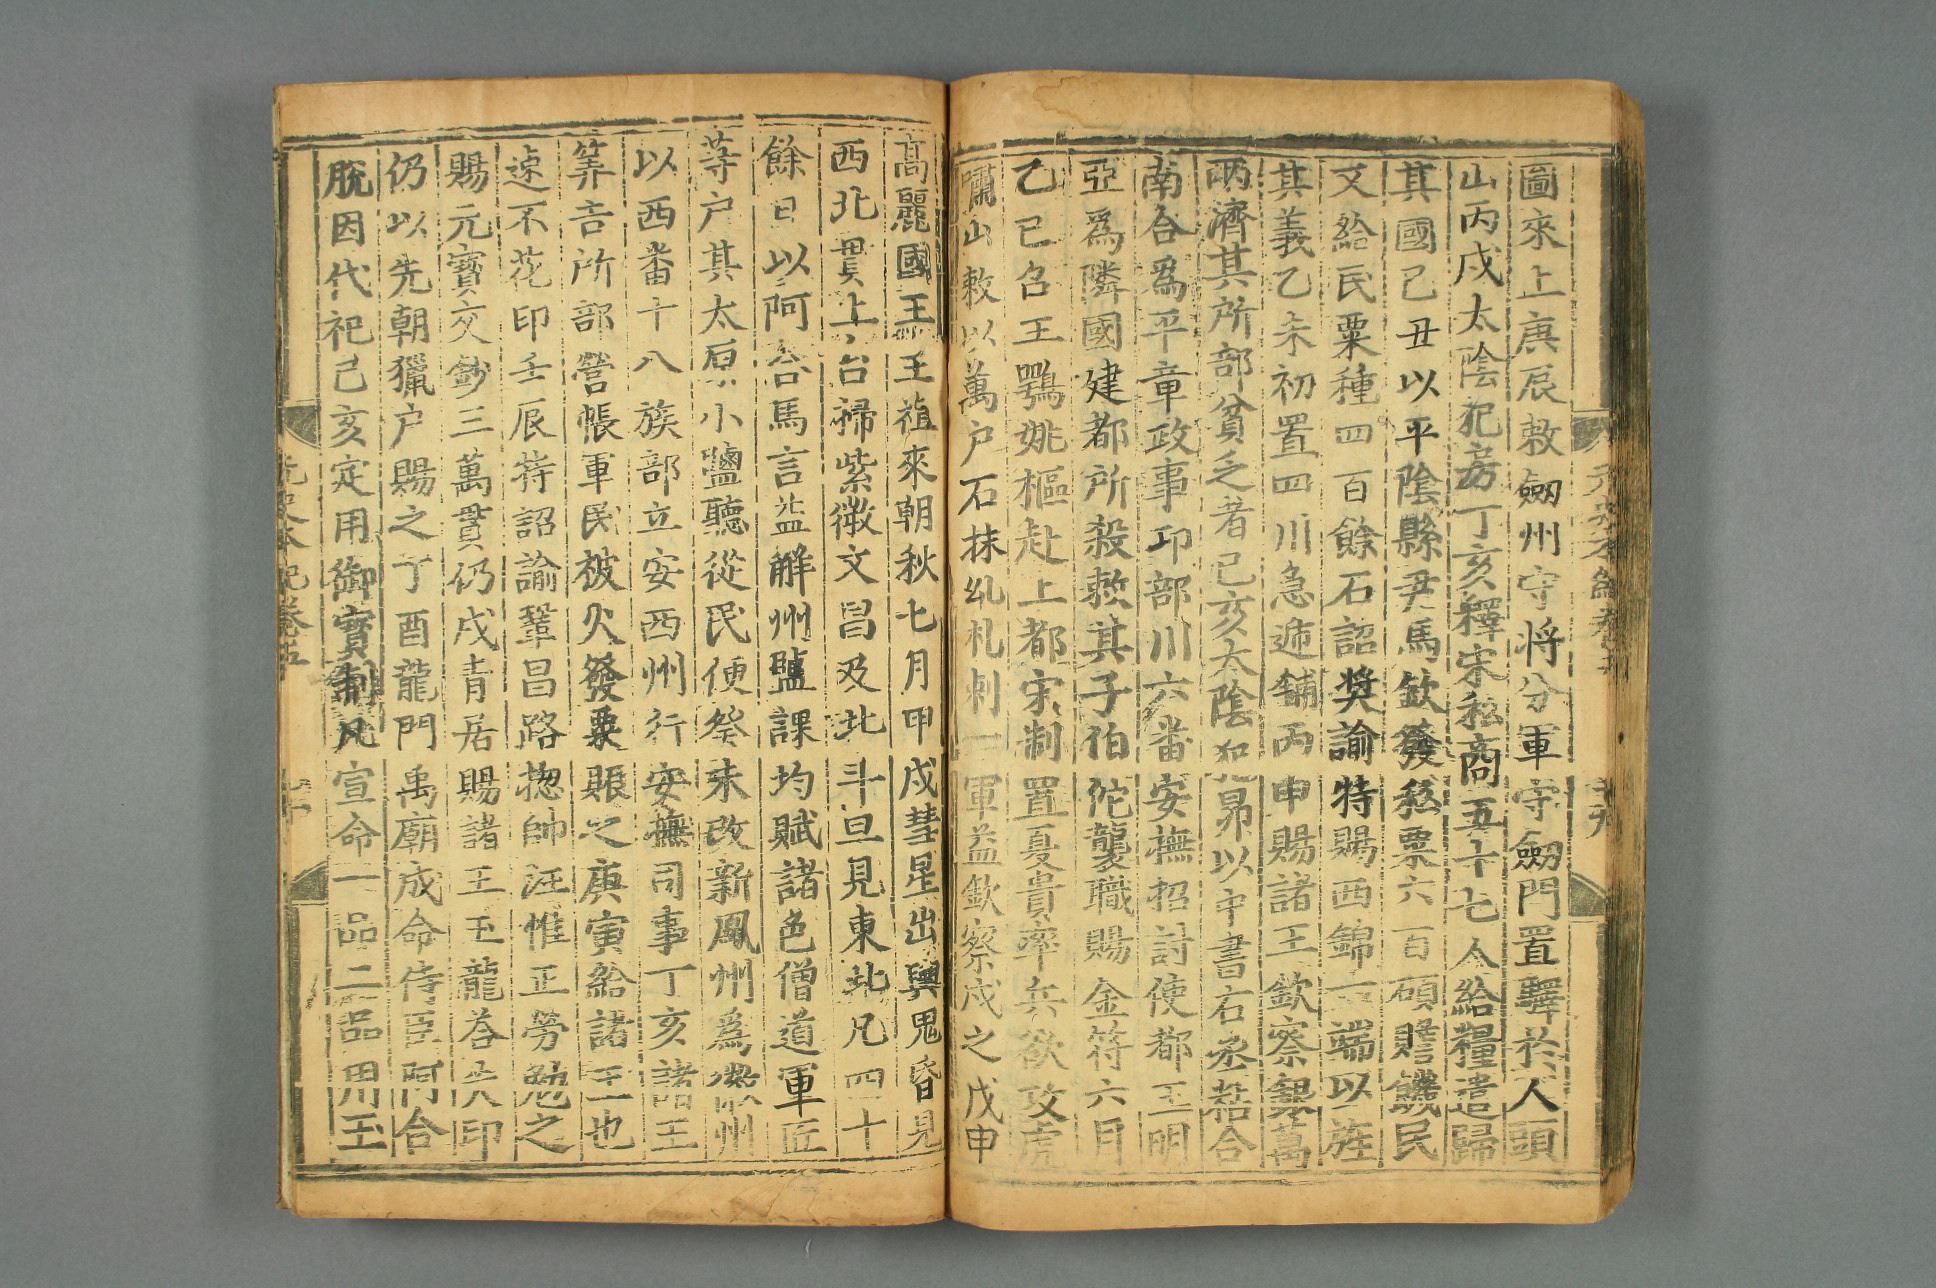 圖來上庚辰敕劔州守將分軍守劔門置驛於人頭
山丙戌太陰犯房丁亥釋宋私商五十七人給糧遣歸
其國己丑以平陰縣尹馬欽發私粟六百碩贍饑民
又給民粟種四百餘石詔奬諭特賜西錦一端以旌
其義乙未初置四川急遞舖丙申賜諸王欽察銀萬
兩濟其所部貧乏者己亥太陰犯昴以中書右丞粘合
南合爲平章政事邛部川六番安撫招討使都王明
亞爲隣國建都所殺敕其子伯佗襲職賜金符六月
乙巳召王鶚姚樞赴上都宋制置夏貴率兵欲攻虎
嘯山敕以萬户石抹糺札剌一軍益欽察戍之戊申
高麗國王王禃來朝秋七月甲戌彗星出輿鬼昏見
西北貫上台掃紫微文昌及北斗旦見東北凡四十
餘日以阿合馬言益解州鹽課均賦諸色僧道軍匠
等户其太原小鹽聽從民便癸未改新鳳州爲徽州
以西番十八族部立安西州行安撫司事丁亥諸王
筭吉所部營帳軍民被火發粟賑之庚寅給諸王也
速不花印壬辰特詔諭鞏昌路揔帥汪惟正勞勉之
賜元寳交鈔三萬貫仍戍青居賜諸王玉龍荅失印
仍以先朝獵户賜之丁酉龍門禹廟成命侍臣阿合
脱因代祀己亥定用御寳制凡宣命一品二品用玉
元史本紀卷五